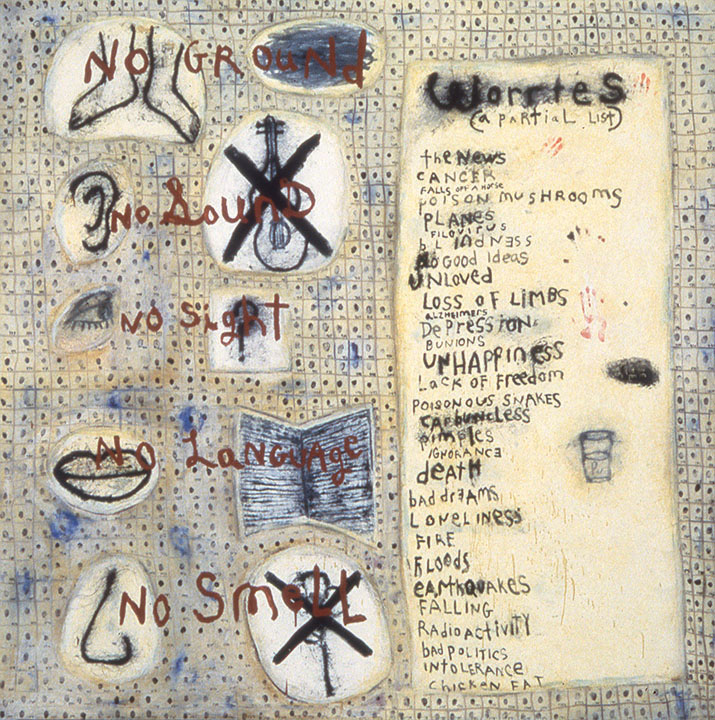 NO GROUNd
NO SOUND
NO SigHt
NO LANGUAGe
NO SmeLL
WorriES
(a PARTiaL LIST)
the News
CANCER
FALLS OFF A HORSE
POISON MUSHROOMS
PLANES
FILOVIRUS
bLINDNESS
NO GOOD IdeaS
UNLOVed
LOSS OF LIMBS
ALZHEIMERS
DePRESSION
BUNIONS
UNHAPPINESS
Lack OF FReedom
POISONOUS SNAKES
CARBUNCLess
PimpLes
IGNORANCE
deatH
bad dreAMS
LONELINESS
FIRE
FLOOdS
eaRtHquAKES
FALLING
RadioactiviTY
bad POLITICS
INTOLERANCe
CHICKEN FAT